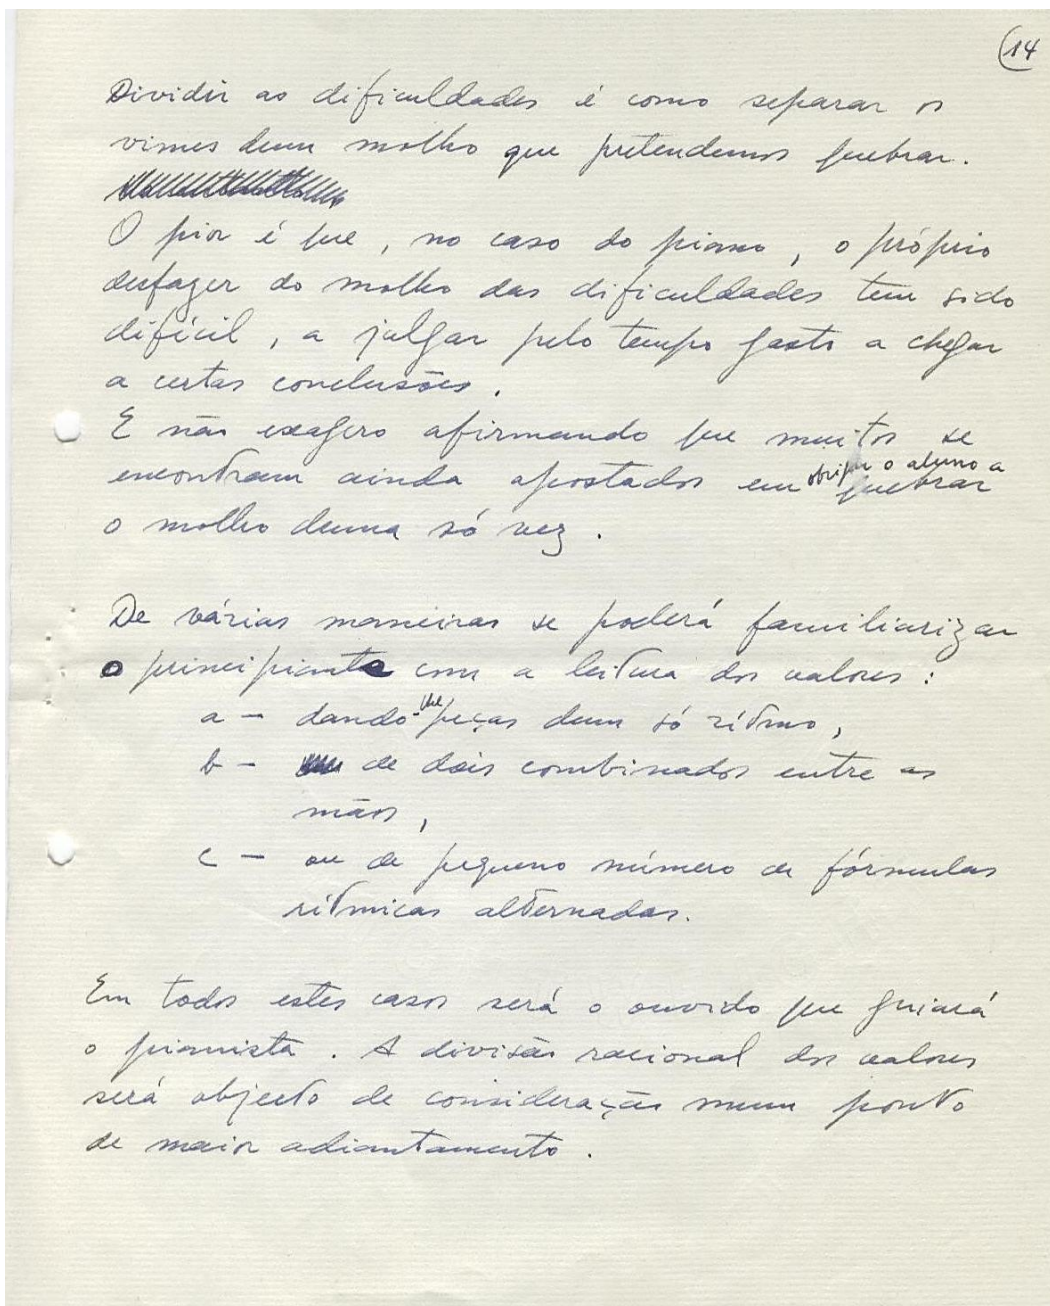 14
Dividir as dificuldades é como separar os
vimes dum molho que pretendemos quebrar.
O pior é que, no caso do piano, o próprio
desfazer do molho das dificuldades tem sido
difícil, a julgar pelo tempo gasto a chegar
a certas conclusões.
E não exagero afirmando que muitos se
encontram ainda apostados em obrigar o aluno a quebrar
o molho duma só vez.
De várias maneiras se poderá familiarizar
o principiante com a leitura dos valores:
a - dando-lhe peças dum só rítmo,
b - de dois combinados entre as
mãos,
c - ou de pequeno número de fórmulas
rítmicas alternadas.
Em todos estes casos será o ouvido que guiará
o pianista. A divisão racional dos valores
será objecto de consideração num ponto
de maior adiantamento.